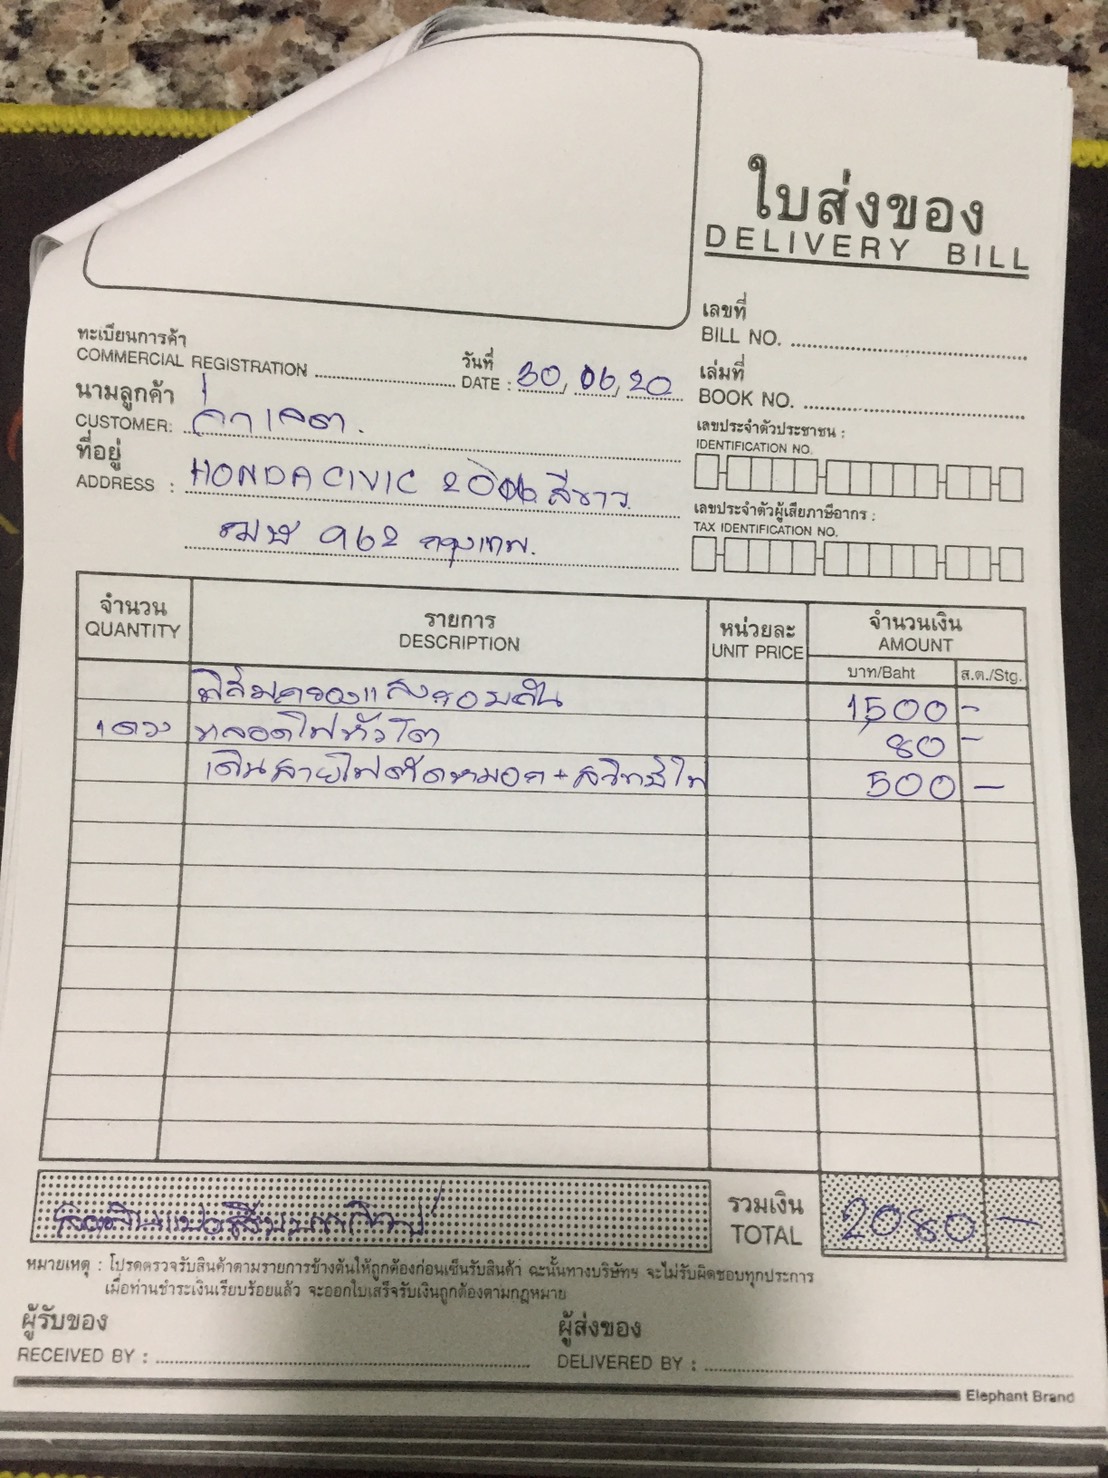 ใบส่งของ
DELIVERY BILL
เลขที่
BILL NO.
ทะเบียนการค้า
COMMERCIAL REGISTRATION
วันที่
DATE : 30, 06, 20
เล่มที่
BOOK NO.
นามลูกค้า
CUSTOMER:
เลขประจำตัวประชาชน :
IDENTIFICATION NO.
ที่อยู่
ADDRESS : HONDA CIVIC 2006 สีขาว
เลขประจำตัวผู้เสียภาษีอากร :
TAX IDENTIFICATION NO.
962 กรุงเทพ.
จำนวน รายการ หน่วยละ จำนวนเงิน
QUANTITY DESCRIPTION UNIT PRICE AMOUNT
บาท/Baht ส.ต./Stg.
ฟิล์มกรองแสงรอบคัน 1500 -
1 ดวง หลอดไฟหัวโต 80 -
เดินสายไฟตัดหมอก + สวิทช์ไฟ 500 -
รวมเงิน
TOTAL 2080 -
หมายเหตุ : โปรดตรวจรับสินค้าตามรายการข้างต้นให้ถูกต้องก่อนเซ็นรับสินค้า ฉะนั้นทางบริษัทฯ จะไม่รับผิดชอบทุกประการ
เมื่อท่านชำระเงินเรียบร้อยแล้ว จะออกใบเสร็จรับเงินถูกต้องตามกฎหมาย
ผู้รับของ ผู้ส่งของ
RECEIVED BY : DELIVERED BY :
Elephant Brand